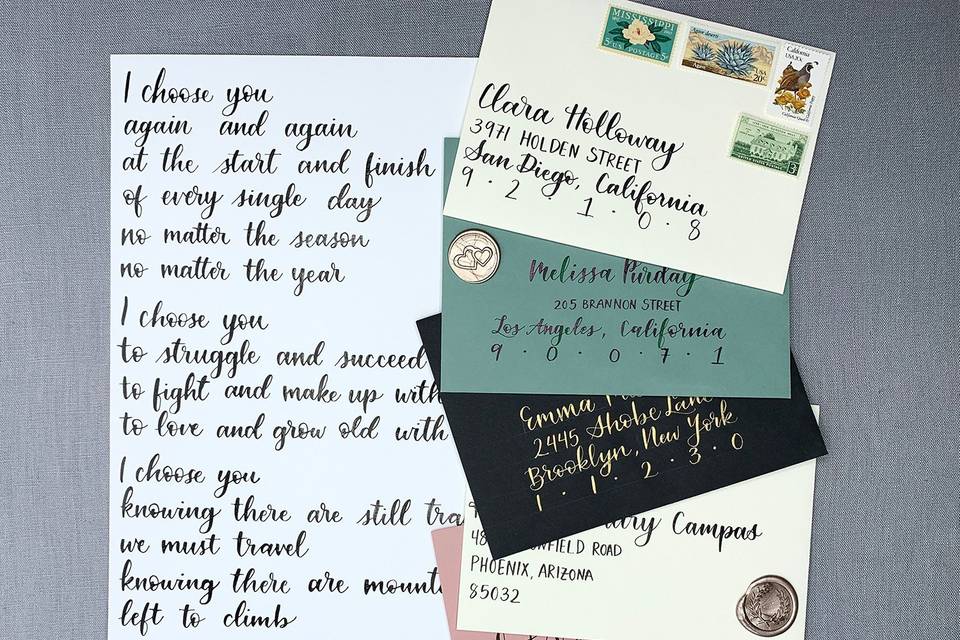 I choose you
again and again
at the start and finish
of every single day
no matter the season
no matter the year
I choose you
to struggle and succeed
to fight and make up with
to love and grow old with
I choose you
knowing there are still
we must travel
knowing there are
left to climb
MISSISSIPPI
5¢ U.S. POSTAGE 5¢
Agave deserti
Agave
USA 20c
California
USA 20c
3¢
Clara Holloway
3971 HOLDEN STREET
San Diego, California
9 · 2 · 1 · 0 · 8
Melissa Purday
205 BRANNON STREET
Los Angeles, California
9 · 0 · 0 · 7 · 1
Emma
2445 Shobe Lane
Brooklyn, New York
1 · 1 · 2 · 3 · 0
Campas
ROAD
PHOENIX, ARIZONA
85032